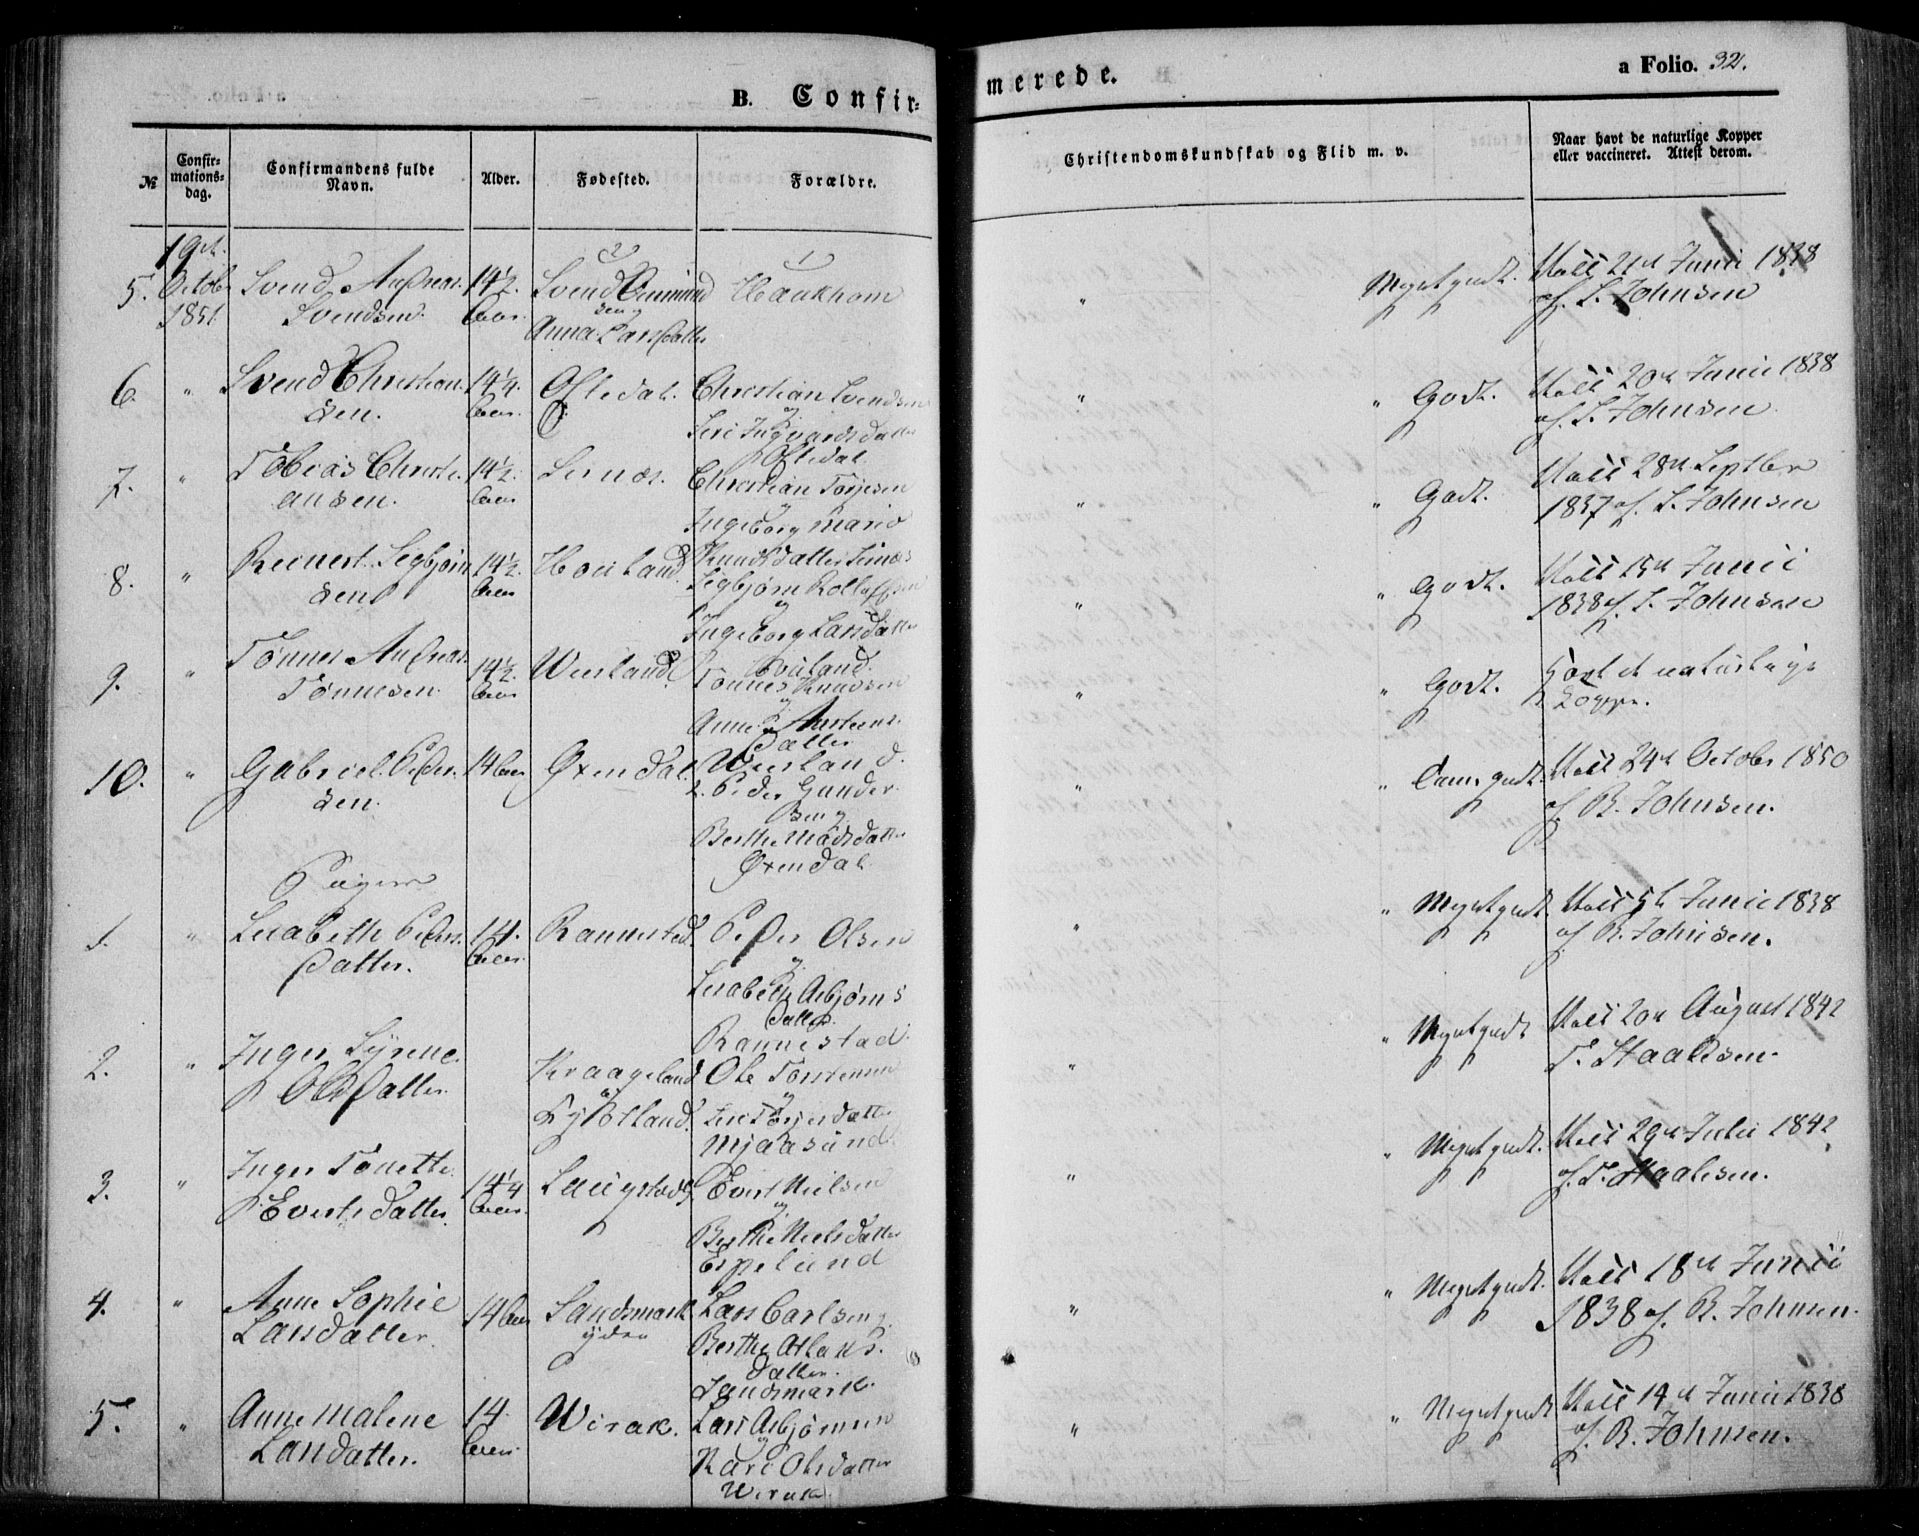 B. Confir-
merede.
a Folio. 32.
№
Confir-
mations-
dag.
Confirmandens fulde
Navn.
Alder.
Fødested.
Forældre.
Christendomskundskab og Flid m. v.
Naar havt de naturlige Kopper
eller vaccineret. Attest derom.
5.
19de
October
1851
Svend Andreas
Svendsen.
14½
Aar.
2)
Svend Omund
sen
Anna Larsdatter
1)
Haukhom
"
Megetgodt.
Vacc 21de Junii 1838
af S. Johnsen
6.
"
Svend Christian
sen.
14¼
Aar.
Ofiedal.
Christian Svendsen
og
Siri Ingvardsdatter
Ofiedal
"
" Godt.
Vacc 20de Junii 1838
af S. Johnsen
7.
"
Tobias Christi
ansen.
14½
Aar
Sirnæs.
Christian Torjesen
og
Ingeborg Maria
Knudsdatter Sirnæs
"
" Godt.
Vacc 28de Septbr
1837 af S. Johnsen
8.
"
Reinert Segbjørn
sen
14½
Aar
Houland
Segbjørn Rolleffsen
og
Ingeborg Larsdatter
Houland.
"
" Godt.
Vacc 15de Junii
1838 af S. Johnsen
9.
"
Tønnes Andreas
Tønnesen
14½
Aar
Wierland
Tønnes Knudsen
og
Anne Austens
Datter
Wierland.
"
" Godt.
havt de naturlige
Kopper.
10.
"
Gabriel Peder
sen.
14 Aar
Øxendal
Peder Gunder
sen og
Berthe Madsdatter
Øxendal
"
" Tem. godt.
Vacc 24de October 1850
af R. Johnsen.
Piger
1.
"
Lisabeth Peders
Datter.
14.
Aar.
Rannestad.
Peder Olsen
og
Lisabeth Asbjørns
Datter
Rannestad.
"
" Megetgodt.
Vacc 5te Junii 1838
af R. Johnsen.
2.
"
Inger Syrene
Olsdatter
Kraageland
Ole Torstensen
og
Siri Torjesdatter
Mjaasund
"
" Megetgodt
Vacc 20de August 1842
T. Staalesen.
3.
"
Inger Tonette
Evertsdatter
14¼
Aar.
Laugstad
Evert Nielsen
og
Berthe Nielsdatter
Espelund
"
" Megetgodt.
Vacc 29de Julii 1842
af T. Staalesen.
4.
"
Anne Sophie
Larsdatter
14 Aar
Sandsmark
ydre
Lars Carlsen og
Berthe Atlaks
Datter.
Sandsmark.
"
" Megetgodt.
Vacc 18de Junii
1838 af R. Johnsen.
5.
"
Anne Malene
Larsdatter.
14
Aar.
Wirak.
Lars Asbjørnsen
og
Kari Olsdatter
Wirak
"
" Megetgodt
Vacc 14de Junii 1838
af R. Johnsen.